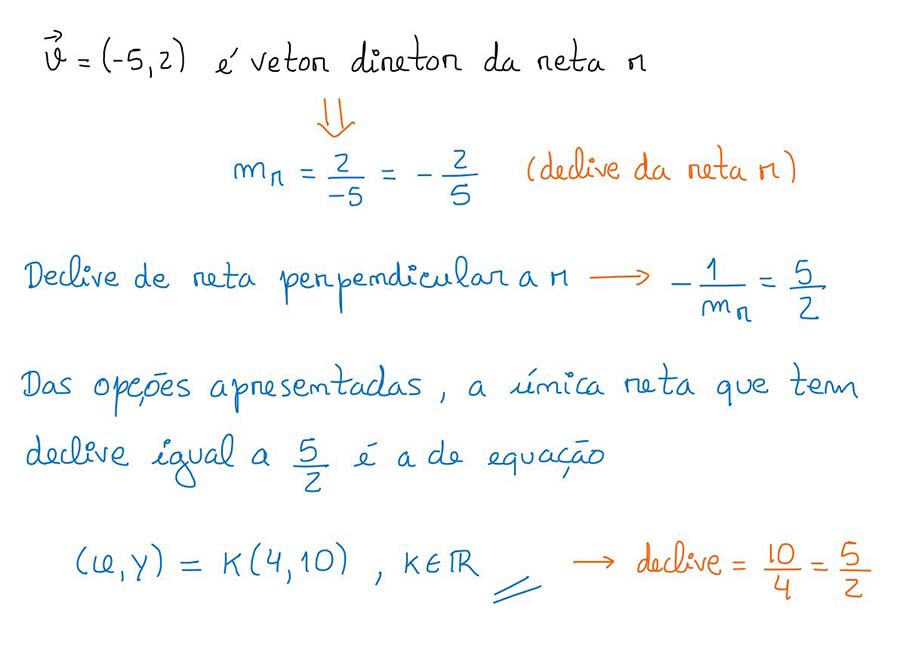 v⃗ = (-5, 2) é vetor diretor da reta r
⇓
mr = 2/-5 = - 2/5 (declive da reta r)
Declive de reta perpendicular a r → - 1/mr = 5/2
Das opções apresentadas, a única reta que tem
declive igual a 5/2 é a de equação
(x, y) = K(4, 10), K ∈ ℝ → declive = 10/4 = 5/2